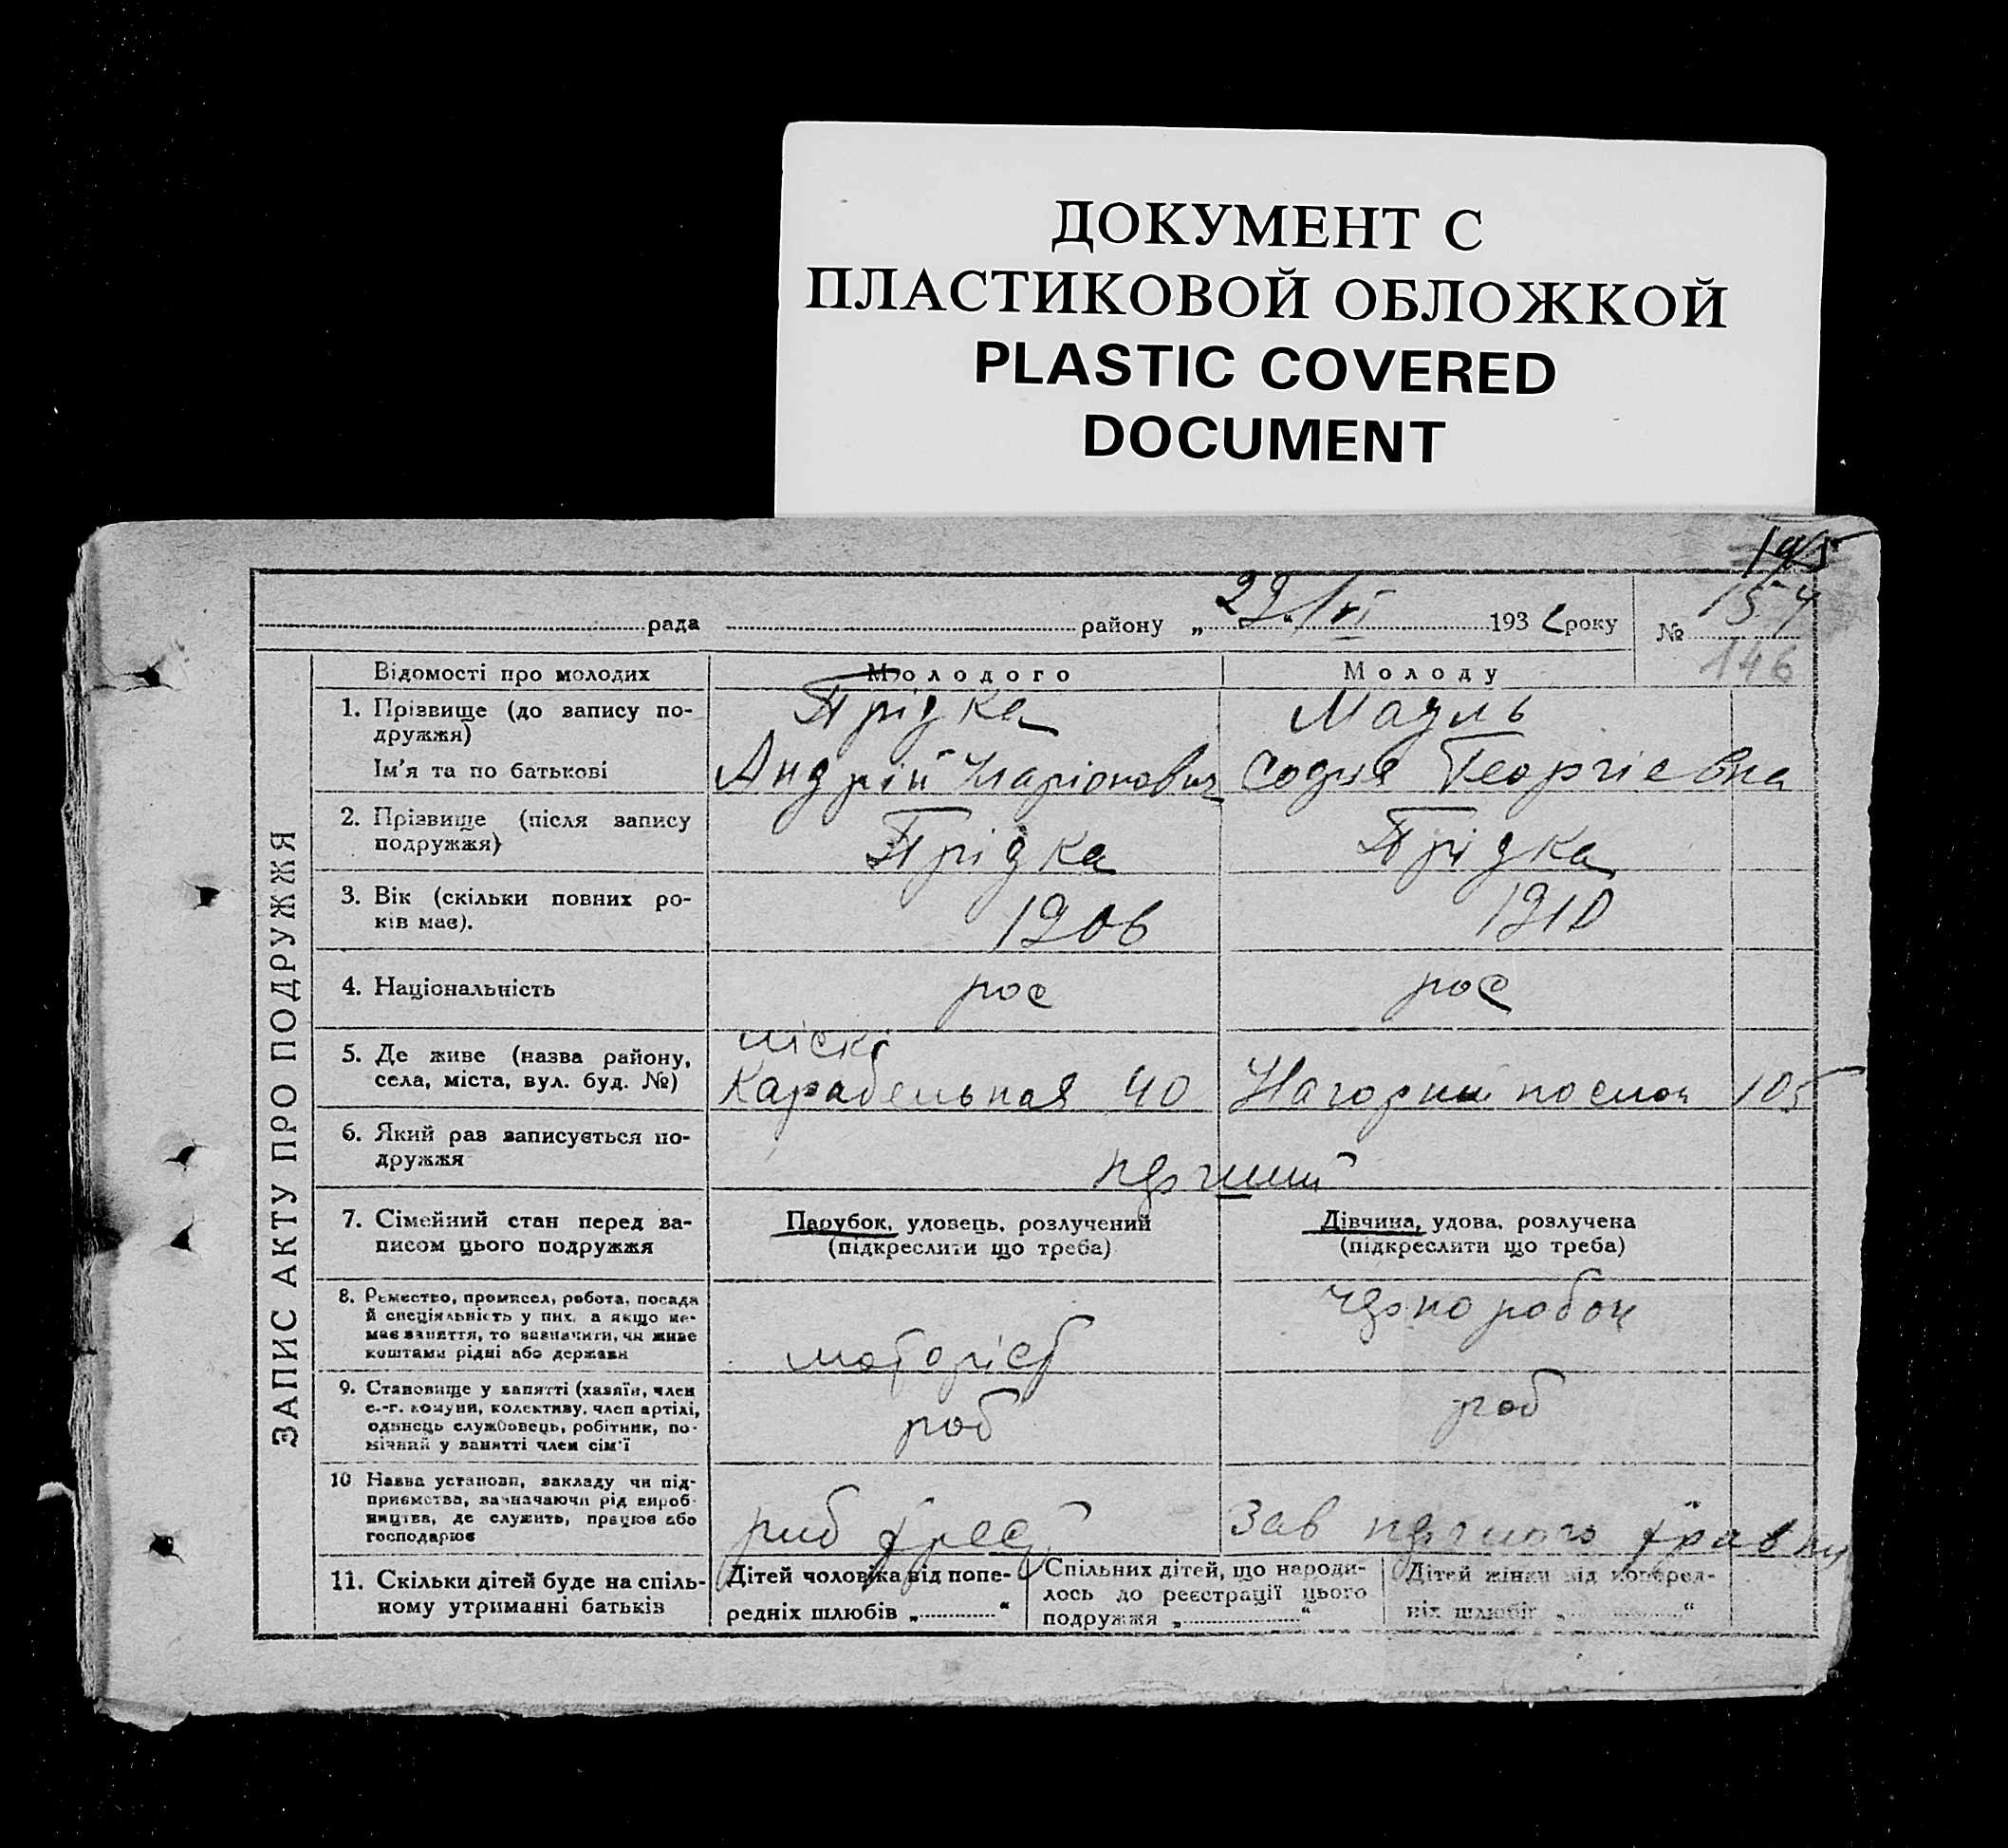 ДОКУМЕНТ С
ПЛАСТИКОВОЙ ОБЛОЖКОЙ
PLASTIC COVERED
DOCUMENT
195
154
рада району „22“ VI 193 2 року №
146
ЗАПИС АКТУ ПРО ПОДРУЖЖЯ
Відомості про молодих Молодого Молоду
1. Прізвище (до запису по-
дружжя)
Прідка Мазль
Ім'я та по батькові Андрій Іларіонович Софія Георгіевна
2. Прізвище (після запису
подружжя)
Прідка Прідка
3. Вік (скільки повних ро-
ків має).
1906 1910
4. Національність рос рос
5. Де живе (назва району,
села, міста, вул. буд. №)
піскі
Карабельная 40 Нагорни 105
6. Який раз записується по-
дружжя
перший
7. Сімейний стан перед за-
писом цього подружжя
Парубок, удовець, розлучений
(підкреслити що треба)
Дівчина, удова, розлучена
(підкреслити що треба)
8. Ремество, промисел, робота, посада
й спеціяльність у них, а якщо не-
має заняття, то зазначити, чи живе
коштами рідні або держави
моторіст чернороboч
9. Становище у занятті (хазяїн, член
с.-г. комуни, колективу, член артілі,
одинець службовець, робітник, по-
мічний у занятті член сім'ї
роб роб
10 Назва установи, закладу чи під-
приємства, зазначаючи рід вироб-
ництва, де служить, працює або
господарює
риб трест Зав першого травня
11. Скільки дітей буде на спіль-
ному утриманні батьків
Дітей чоловіка від попе-
редніх шлюбів „ “
Спільних дітей, що народи-
лось до реєстрації цього
подружжя „ “
Дітей жінки від поперед-
ніх шлюбів „ “